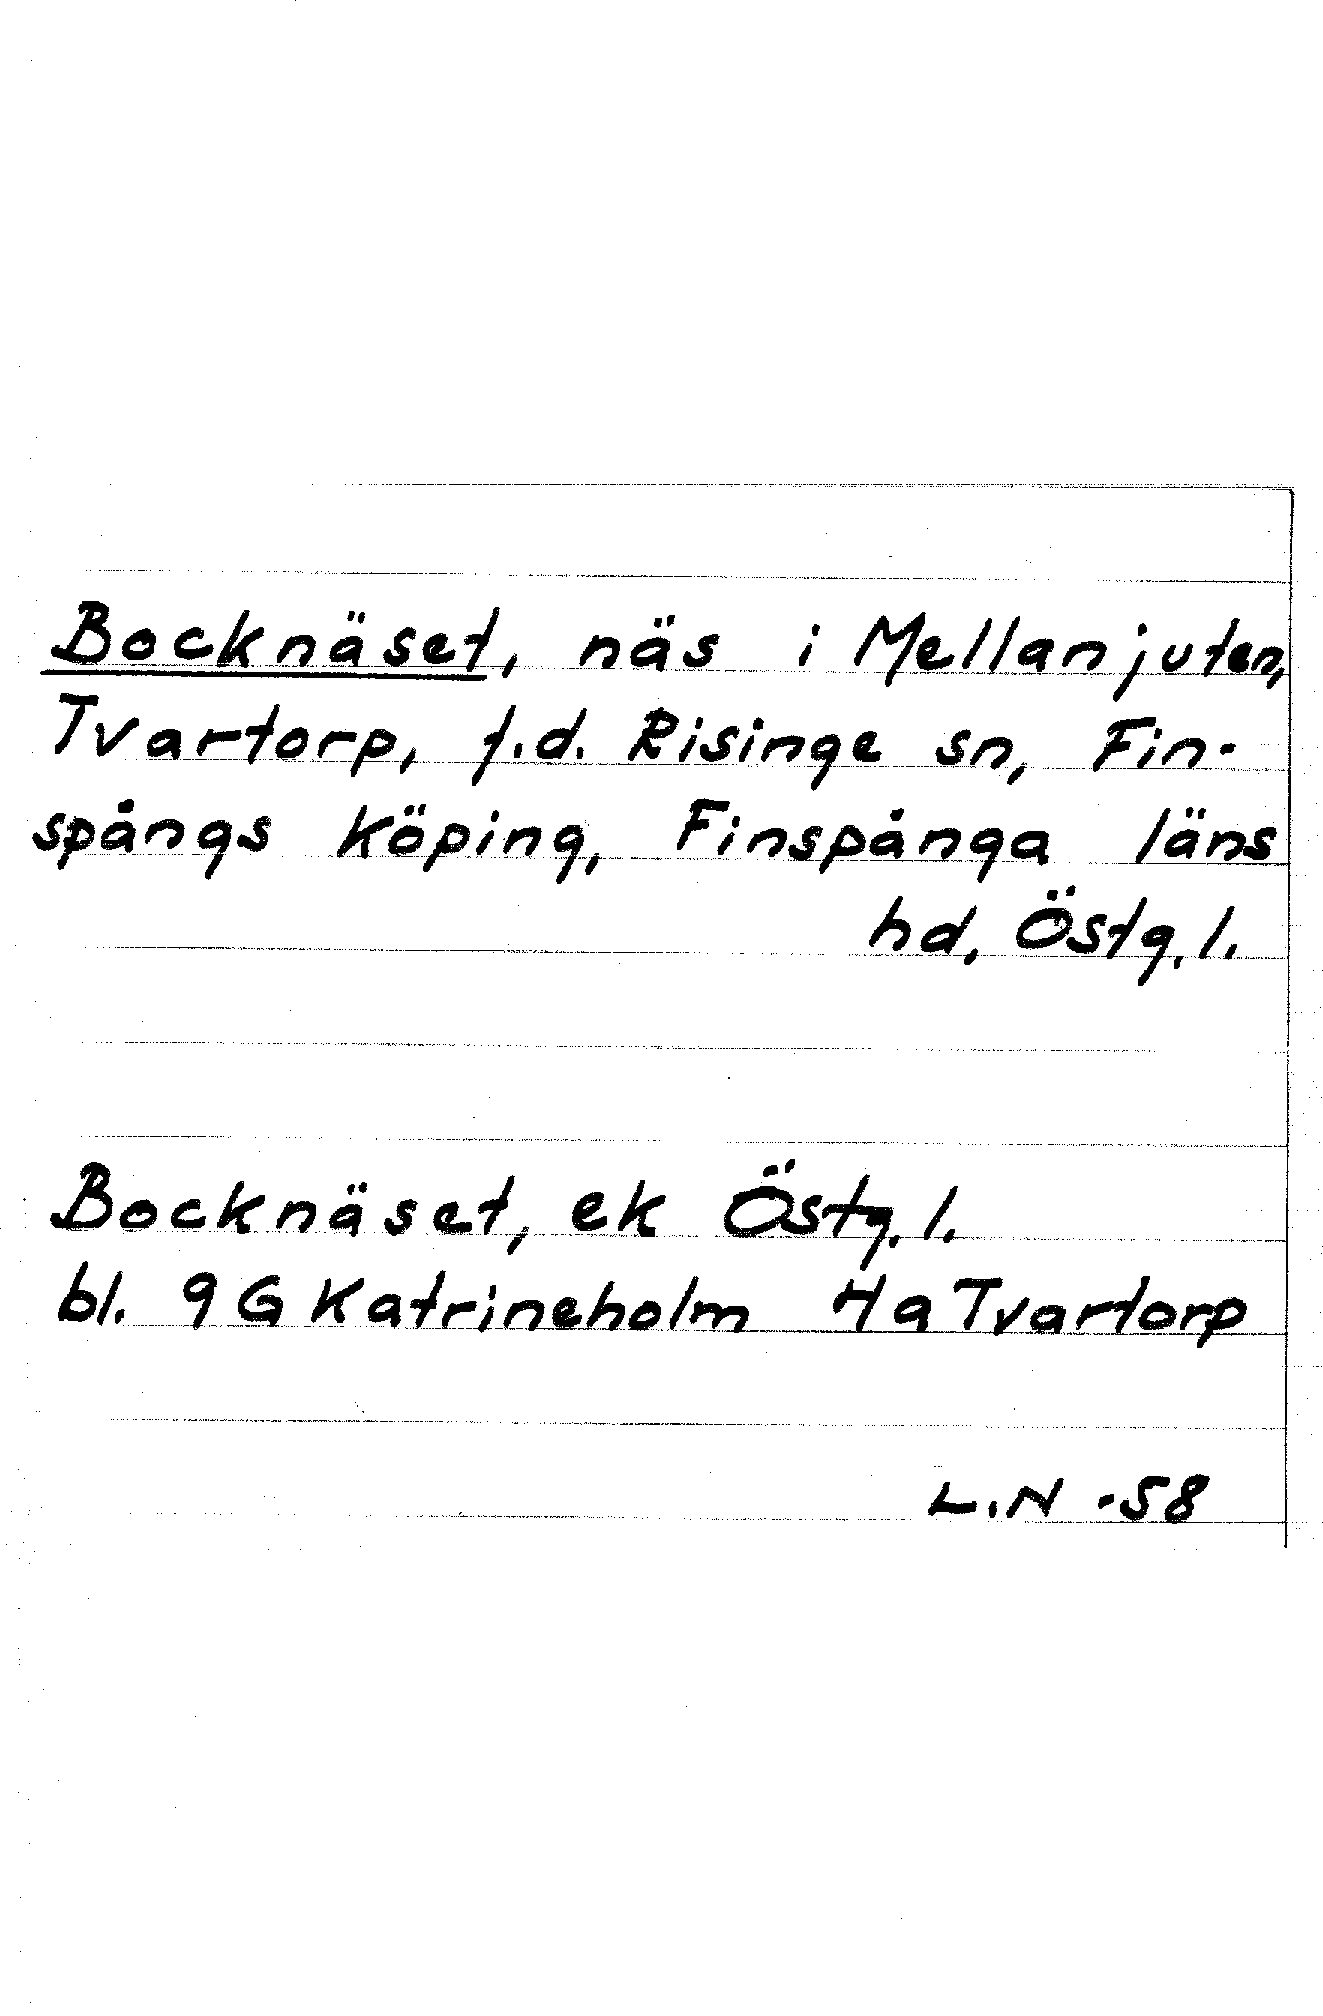 Bocknäset, näs i Mellanjuten,
Tvartorp, f.d. Risinge sn, Fin-
spångs köping, Finspånga läns
hd, Östg. l.
Bocknäset, ek Östg. l.
bl. 9 G Katrineholm 4 a Tvartorp
L.N -58